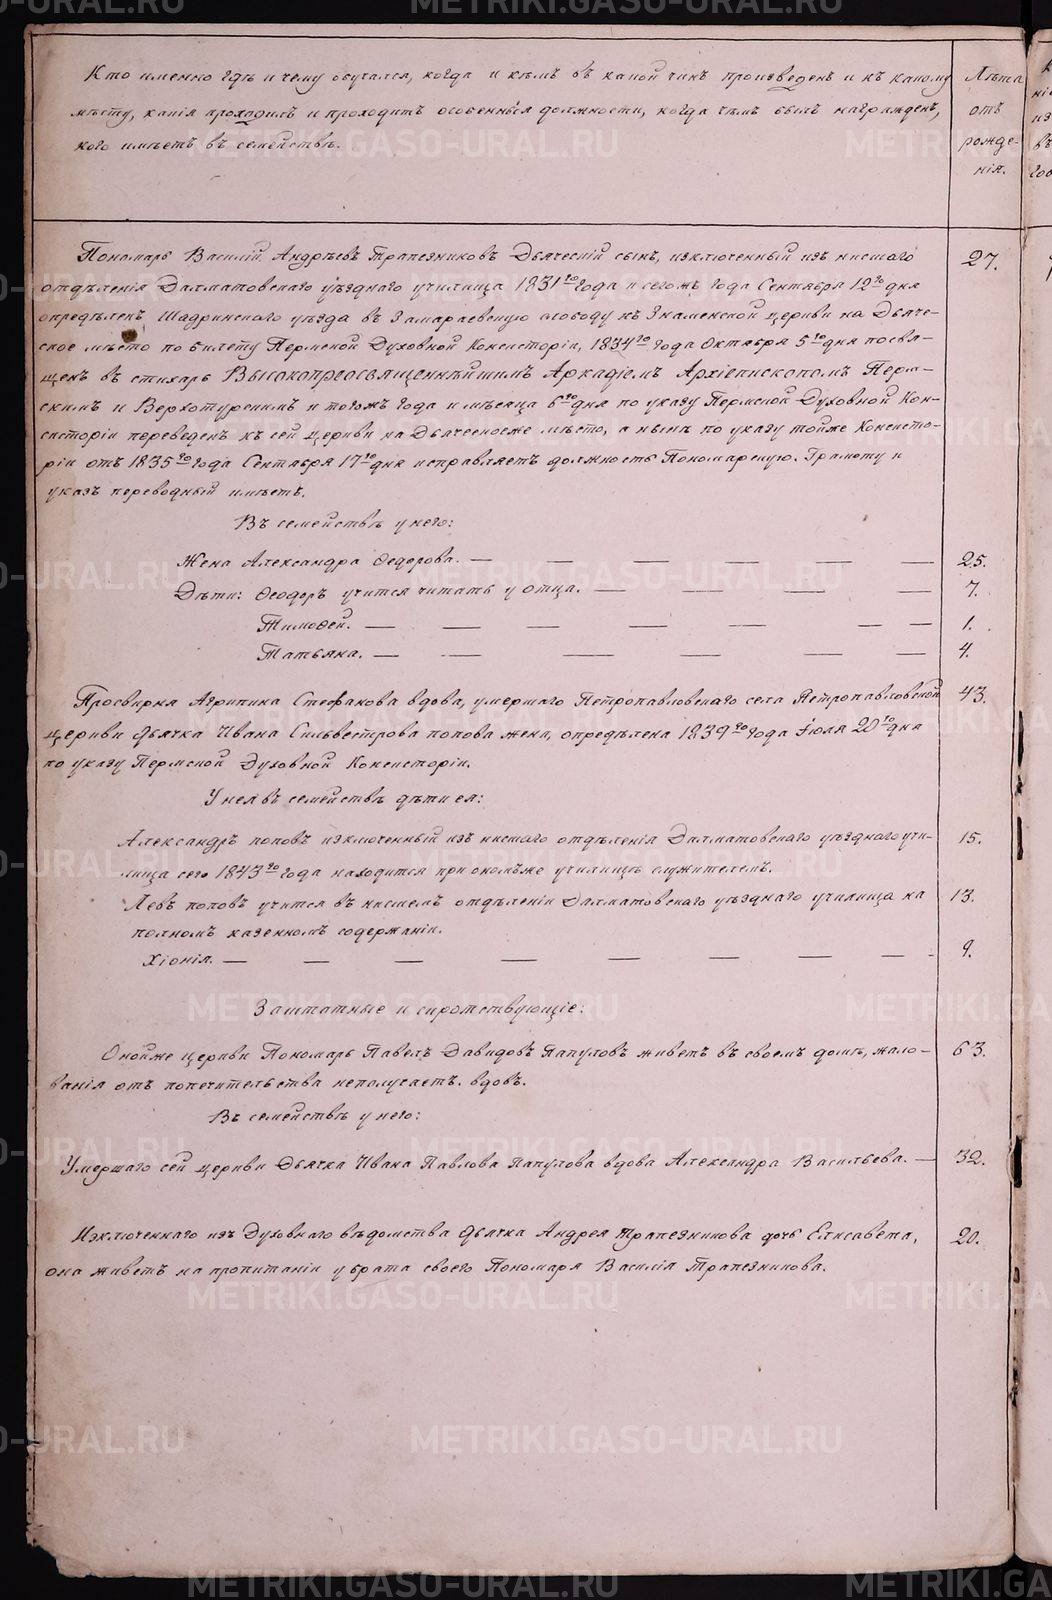 Кто именно гдѣ и чему обучался, когда и кѣмъ въ какой чинъ произведенъ и къ какому
мѣсту, какія проходилъ и проходитъ особенныя должности, когда чѣмъ былъ награжденъ,
кого имѣетъ въ семействѣ.
Лѣта
отъ
рожде-
нія.
Пономарь Василій Андреевъ Трапезниковъ Дьяческій сынъ, изключенный изъ нисшаго 27.
отдѣленія Далматовскаго уѣзднаго училища 1831го года и сегожъ года Сентября 12го дня
опредѣленъ Шадринскаго уѣзда въ Замараевскую слободу къ Знаменской церкви на Дьяче-
ское мѣсто по билету Пермской Духовной Консисторіи, 1834го года Октября 5го дня посвя-
щенъ въ стихарь Высокопреосвященнѣйшимъ Аркадіемъ Архіепископомъ Перм-
скимъ и Верхотурскимъ и тогожъ года и мѣсяца 6го дня по указу Пермской Духовной Кон-
систоріи переведенъ къ сей церкви на Дьяческоеже мѣсто, а нынѣ по указу тойже Консисто-
ріи отъ 1835го года Сентября 17го дня исправляетъ должность Пономарскую. Грамоту и
указъ переводный имѣетъ.
Въ семействѣ у него:
Жена Александра Ѳедорова. — 25.
Дѣти: Ѳеодоръ учится читать у отца. — 7.
Тимоѳей. — 1.
Татьяна. — 4.
Просвирня Агрипина Стефанова вдова, умершаго Петропавловскаго села Петропавловской 43.
церкви дьячка Ивана Сильвестрова попова жена, опредѣлена 1839го года Іюля 20го дня
по указу Пермской Духовной Консисторіи.
У нея въ семействѣ дѣти ея:
Александръ поповъ изключенный изъ нисшаго отдѣленія Далматовскаго уѣзднаго учи- 15.
лища сего 1843го года находится при ономъже училищѣ служителемъ.
Левъ поповъ учится въ нисшемъ отдѣленіи Далматовскаго уѣзднаго училища на 13.
полномъ казенномъ содержаніи.
Хіонія. — 9.
Заштатные и сиротствующіе:
Онойже церкви Пономарь Павелъ Давидовъ Папуловъ живетъ въ своемъ домѣ, жало- 63.
ванія отъ попечительства неполучаетъ. вдовъ.
Въ семействѣ у него:
Умершаго сей церкви Дьячка Ивана Павлова Папулова вдова Александра Васильева. — 32.
Изключеннаго изъ Духовнаго вѣдомства дьячка Андрея Трапезникова дочь Елисавета, 20.
она живетъ на пропитаніи у брата своего Пономаря Василія Трапезникова.
METRIKI.GASO-URAL.RU